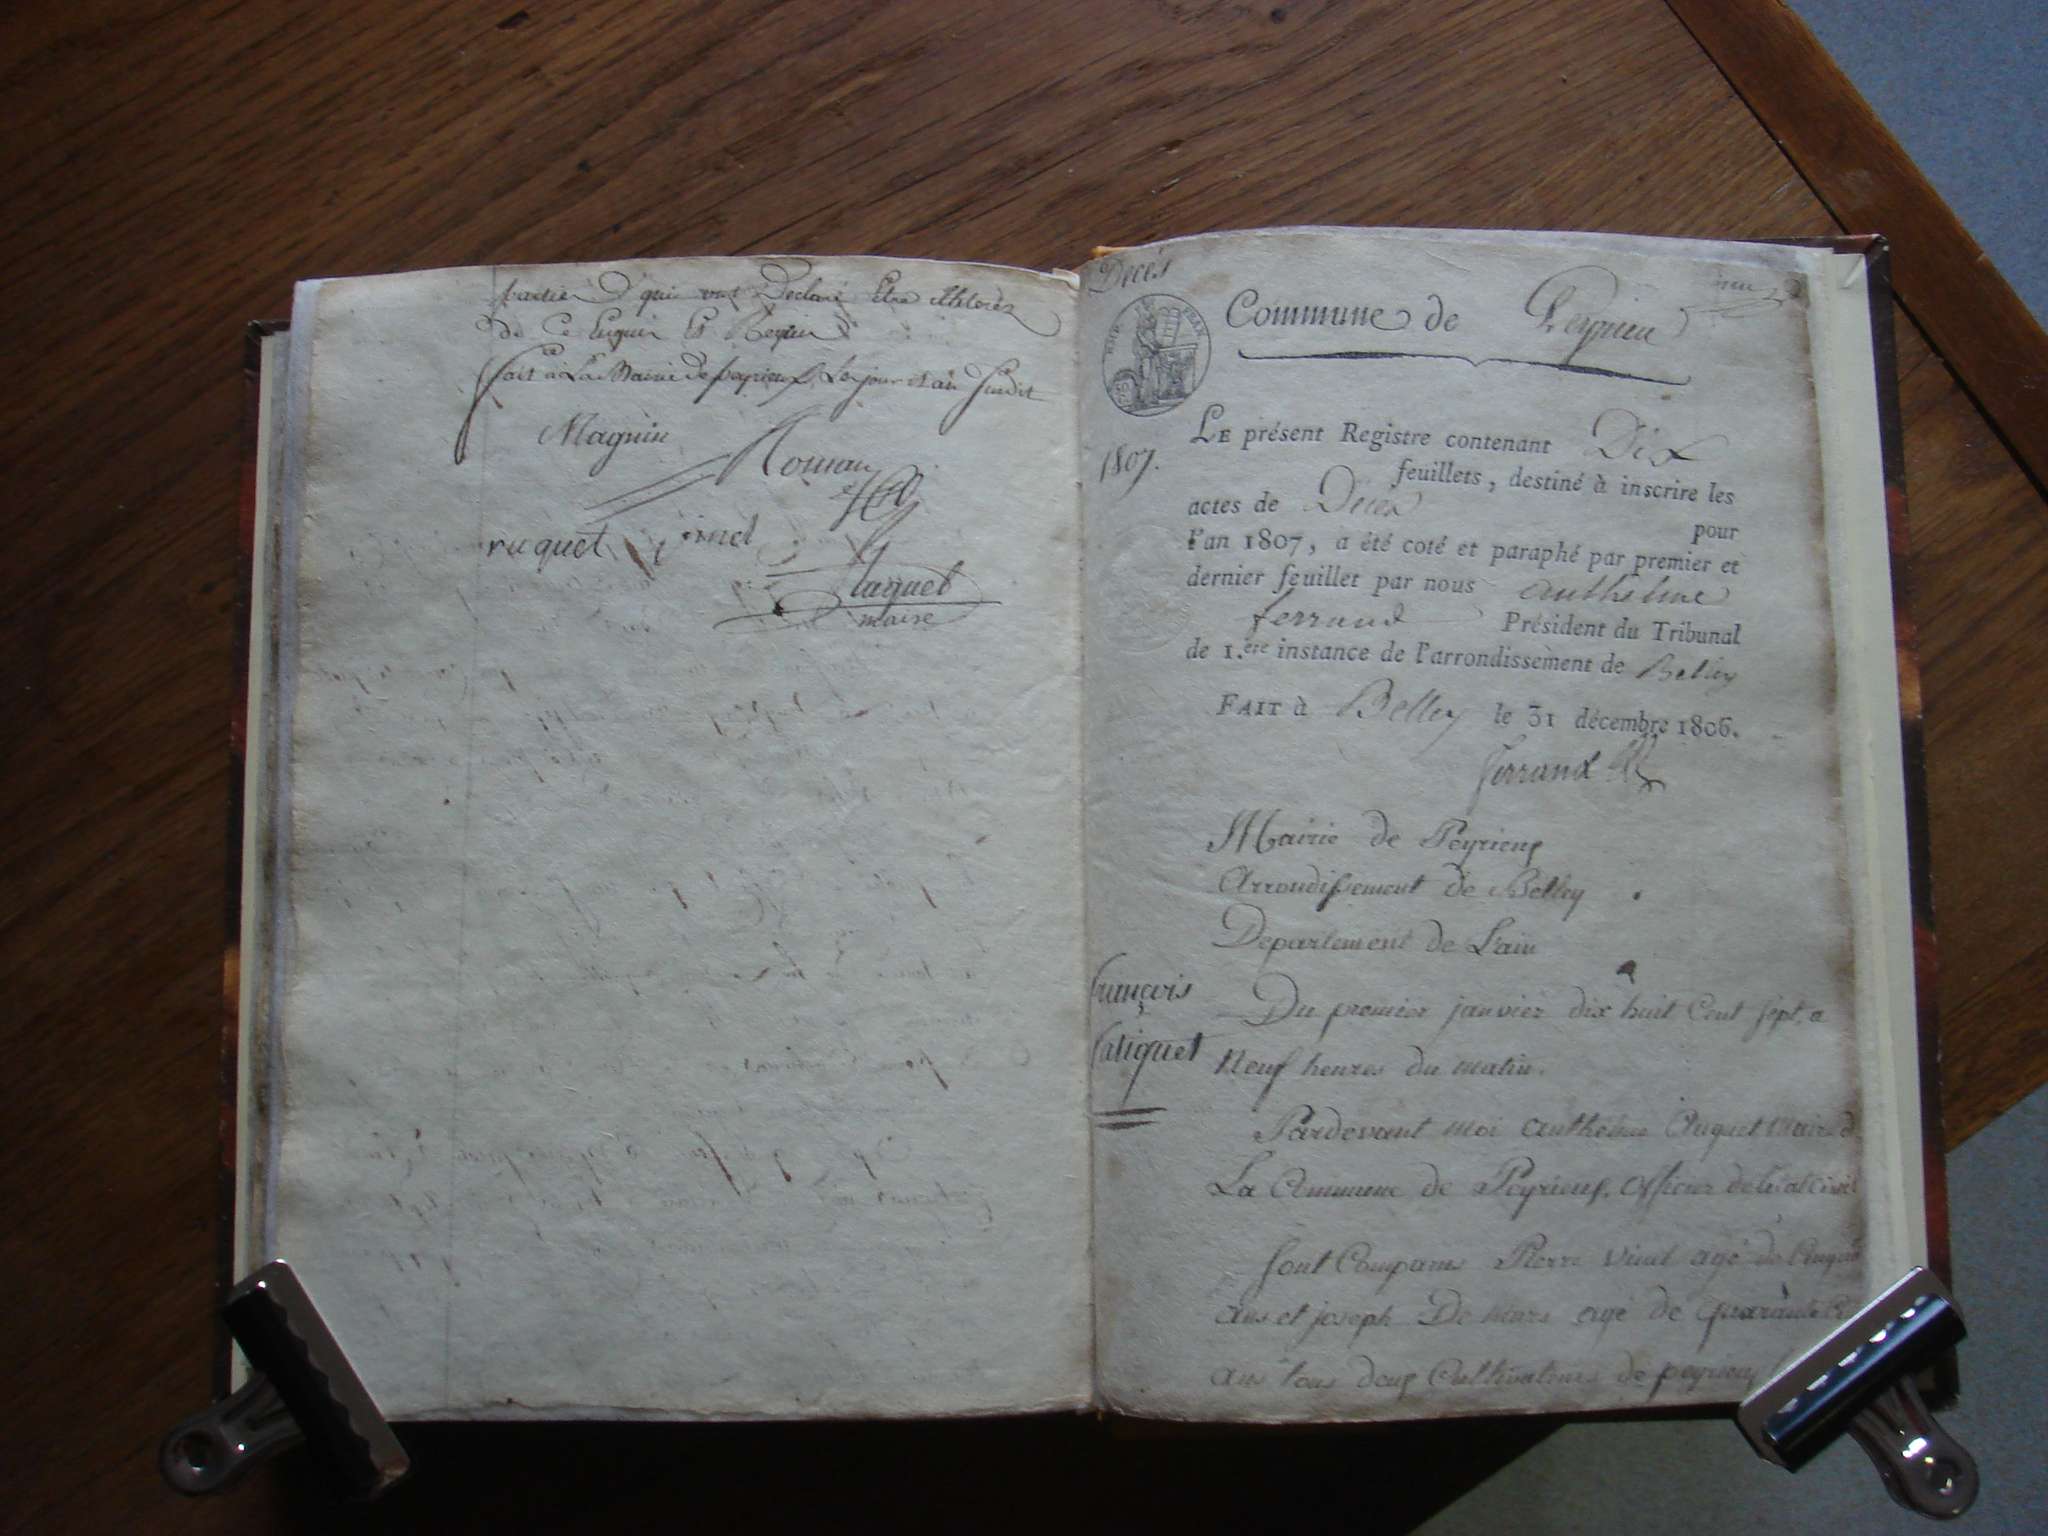 parties qui ont Déclaré Etre illiterés
de ce Enquis Et Requis
fait a La Mairie de peyrieux, Les jour et an Susdit
Magnin
Roman
ruquet
vinel
maire
Decès
Commune de Peyrieu
RÉP. FRAN.
1807.
LE présent Registre contenant Dix
feuillets, destiné à inscrire les
actes de Décès
pour
l'an 1807, a été coté et paraphé par premier et
dernier feuillet par nous anthelme
ferrand Président du Tribunal
de 1.ere instance de l'arrondissement de Belley
FAIT à Belley le 31 décembre 1806.
ferrand
Mairie de Peyrieux
Arrondissement de Belley
Departement de L'ain
françois
Du premier janvier dix huit Cent Sept, a
Neuf heures du matin.
Pardevant moi anthelme Maire de
La Commune de Peyrieux, officier de l'etat Civil
Sont Comparus Pierre vinel agé de
ans et joseph agé de quarante
ans tous deux Cultivateurs de peyrieux